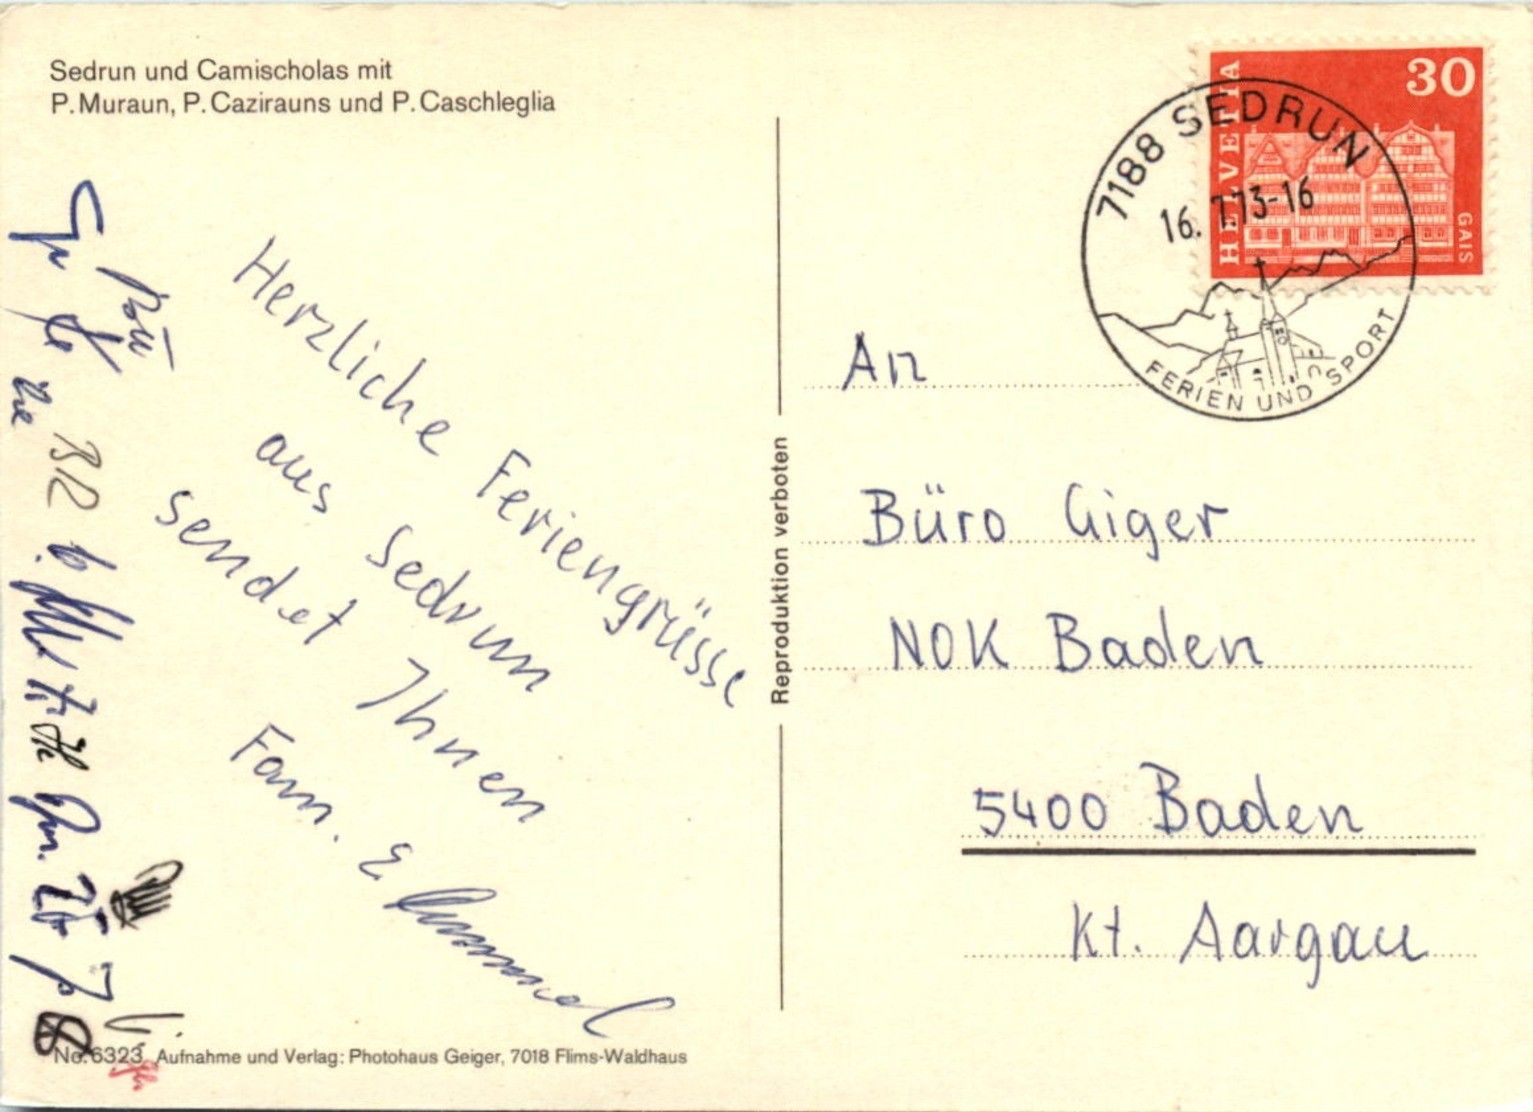 Sedrun und Camischolas mit
P. Muraun, P. Cazirauns und P. Caschleglia
Herzliche Feriengrüsse
aus Sedrun
sendet Ihnen
Fam. E.
No. 6323 Aufnahme und Verlag: Photohaus Geiger, 7018 Flims-Waldhaus
Reproduktion verboten
HELVETIA
30
GAIS
7188 SEDRUN
16. 7.73-16
FERIEN UND SPORT
An
Büro Giger
NOK Baden
5400 Baden
Kt. Aargau